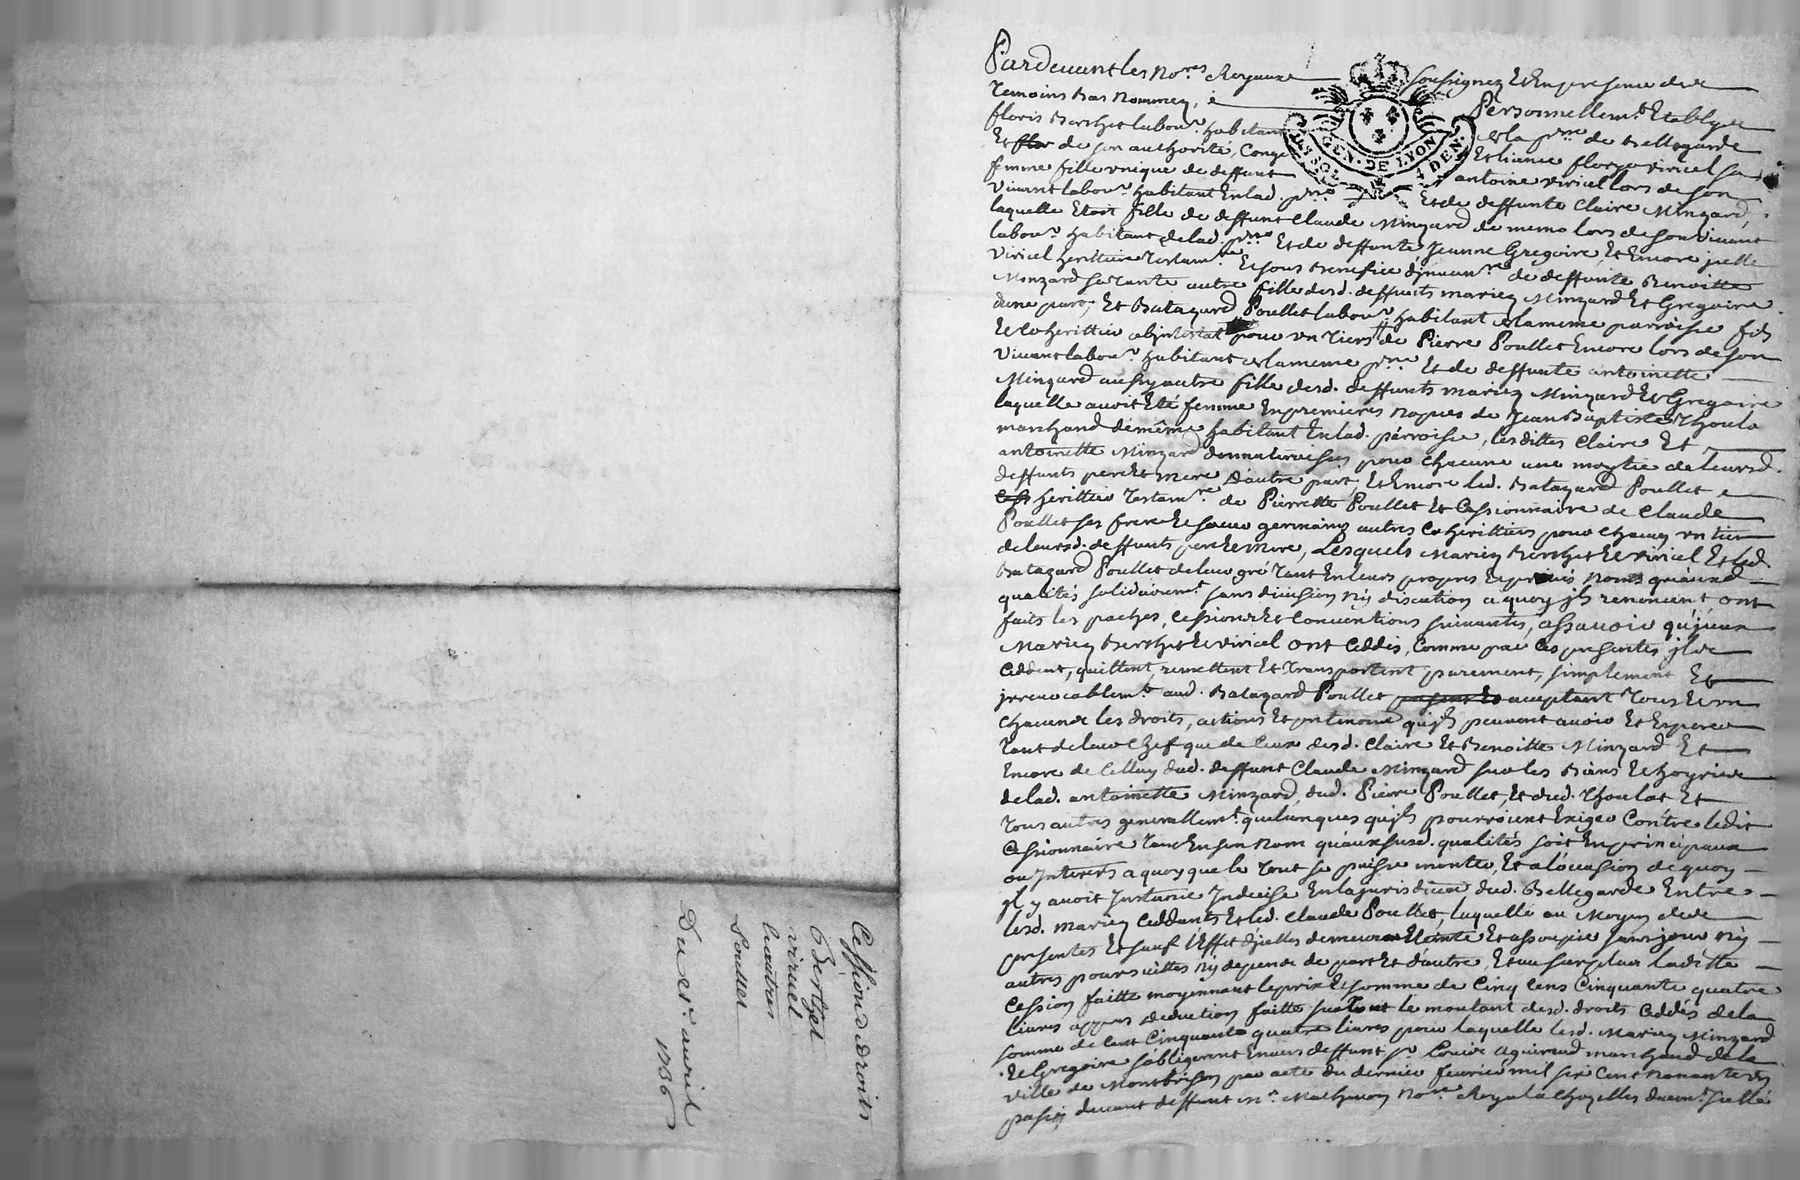 Cession de droits
Berthet
viricel
les autres
Poullet
Du er. avril
1736
Pardevant les Nores. Royaux soussignez et en presence des
temoins bas nommez,
Personnellemt. Etablys
floris Berthet labour. habitant la prre de Bellegarde
GEN. DE LYON
DEN.
Et de son authorité, Congé Et licence viricel sa
femme fille unique de deffunt antoine viricel lors de son
vivant labour. habitant En lad. prre Et de deffunte Claire Minzard,
laquelle Etoit fille de deffunt Claude Minzard de meme lors de son vivant
labour. habitant de lad. prre Et de deffunte Jeanne Gregoire, Et Encore jcelle
viricel herittiere testamre. Et sous Benefice djnvenre. de deffunte Benoitte
Minzard sa tante autre fille desd. deffunts mariez Minzard Et Gregoire
d'une part, Et Batazard Poullet labour. habitant la meme parroisse fils
Et Coherittier abjntestat pour un tiers de Pierre Poullet Encore lors de son
vivant labour. habitant la meme prre Et de deffunte antoinette
Minzard aussy autre fille desd. deffunts mariez Minzard Et Gregoire
laquelle avoit Eté femme En premieres nopces de Jean Baptiste Thoula
marchand de même habitant En lad. parroisse, lesdittes Claire Et
antoinette Minzard donnataires pour chacune une moytie de leursd.
deffunts pere Et mere d'autre part, Et Encore led. Batazard Poullet
herittier testamre. de Pierrette Poullet Et Cessionnaire de Claude
Poullet ses frere Et soeur germains autres Coherittiers pour chacun un tiers
de leursd. deffunts pere Et mere, Lesquels Mariez Berthet Et viricel Et led.
Batazard Poullet de leur gré tant En leurs propres Et privés noms qu'auxd.
qualités solidairemt. sans division ny discution a quoy jls renoncent ont
faits les pactes, cessions Et Conventions suivantes, assavoir que jceux
Mariez Berthet Et viricel ont Ceddés, Comme par Ces presentes jls
Ceddent, quittent, remettent Et transportent purement, simplement Et
jrrevocablemt. aud. Batazard Poullet acceptant tous Et un
chacuns les droits, actions Et pretentions qu'jls peuvent avoir Et Esperer
tant de leur Chef que de Ceux desd. Claire Et Benoitte Minzard Et
Encore de Celluy dud. deffunt Claude Minzard sur les Biens Et hoyries
de lad. antoinette Minzard, dud. Pierre Poullet, Et dud. Thoulat Et
tous autres generallemt. quelconques qu'jls pourroient Exiger Contre ledit
Cessionnaire tant En son Nom qu'aux susd. qualités soit En principaux
ou jnterets a quoy que le tout se puisse monter, Et a l'occasion de quoy
jl y avoit jnstance jndecise En la jurisdiction dud. Bellegarde Entre
lesd. mariez Ceddants Et led. Claude Poullet, laquelle au Moyen des
presentes Et sauf l'Effet d'jcelles demeure Eteinte Et assoupie sans jour ny
autres poursuittes ny depens de part Et d'autre, Et au surplus laditte
Cession faitte moyennant le prix Et somme de Cinq Cens Cinquante quatre
livres appres deduction faitte sur tout le montant desd. droits Ceddés de la
somme de Cent Cinquante quatre livres pour laquelle lesd. Mariez Minzard
Et Gregoire s'obligerent Envers deffunt sr. Louis marchand de la
ville de Montbrison par acte du dernier fevrier mil six Cent nonante
passé devant deffunt me. Nore. Royal a Chazelles